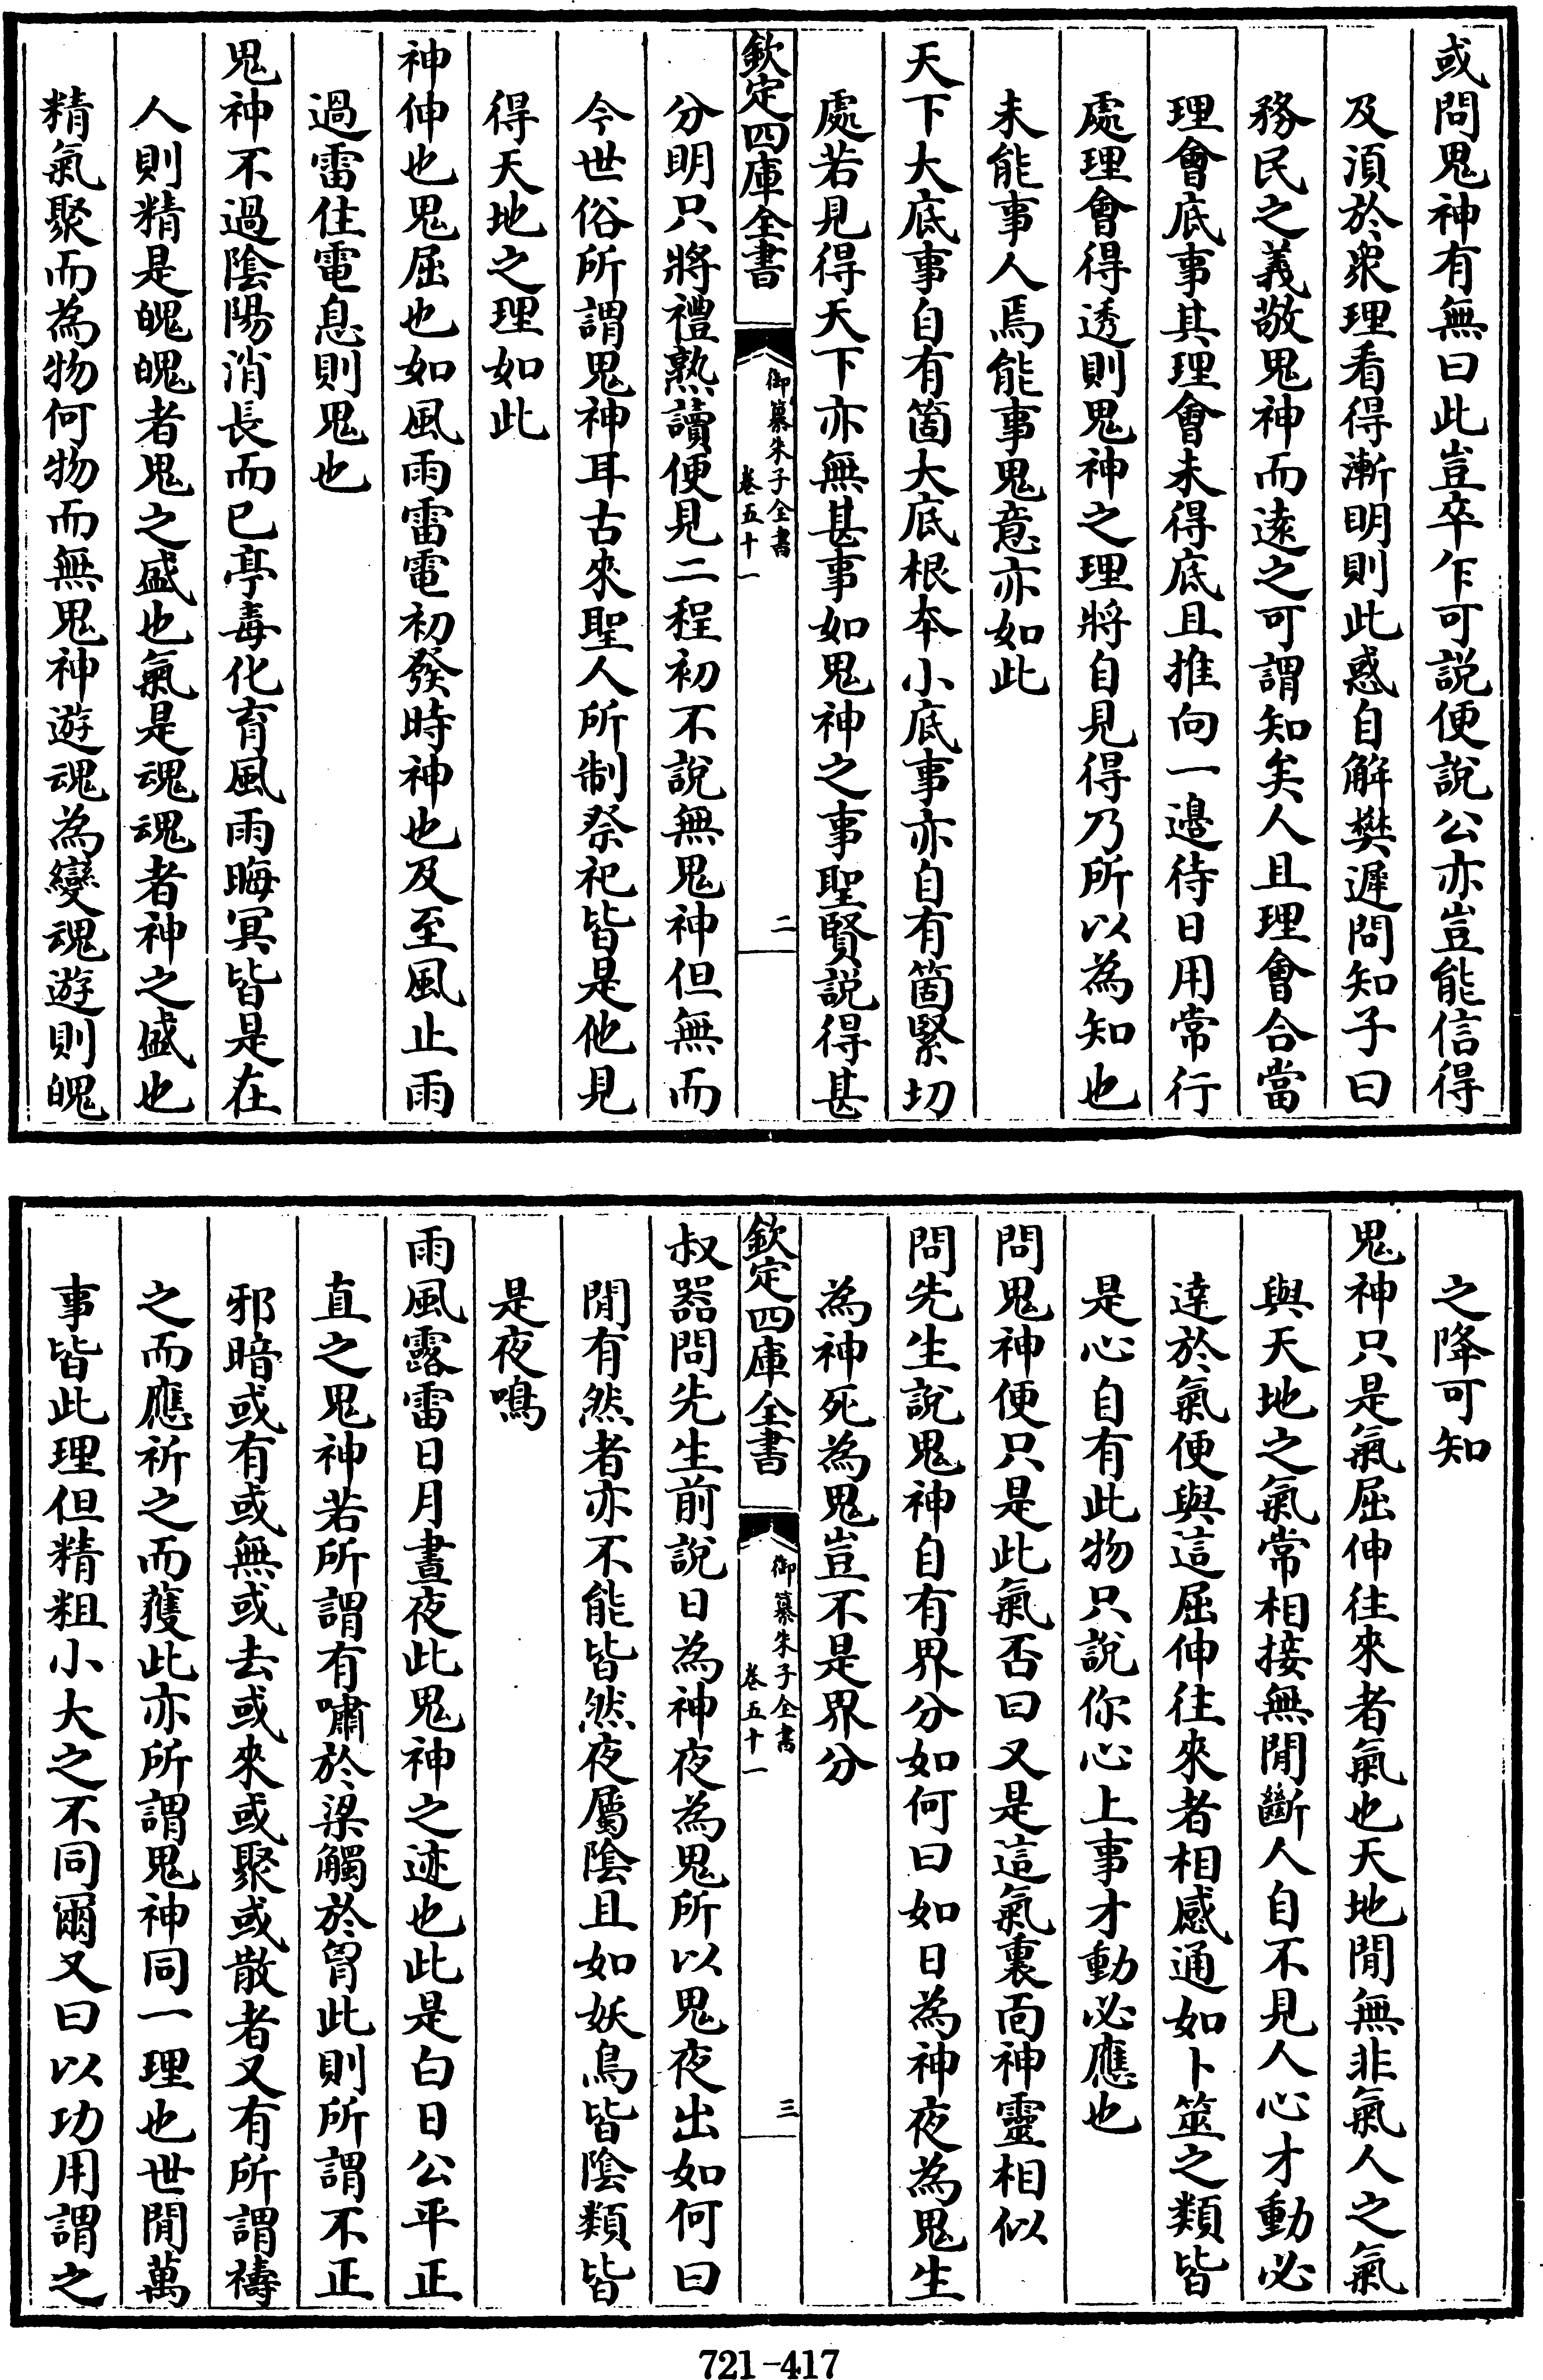 或問鬼神有無曰此豈卒乍可説便說公亦豈能信得
及須於衆理看得漸明則此惑自解樊遲問知子曰
務民之義敬鬼神而遠之可謂知矣人且理會合當
理會底事其理會未得底且推向一邊待日用常行
處理會得透則鬼神之理將自見得乃所以為知也
未能事人焉能事鬼意亦如此
天下大底事自有箇大底根本小底事亦自有箇緊切
處若見得天下亦無甚事如鬼神之事聖賢説得甚
欽定四庫全書
御纂朱子全書
卷五十一
二
分明只將禮熟讀便見二程初不說無鬼神但無而
今世俗所謂鬼神耳古來聖人所制祭祀皆是他見
得天地之理如此
神伸也鬼屈也如風雨雷電初發時神也及至風止雨
過雷住電息則鬼也
鬼神不過陰陽消長而已亭毒化育風雨晦冥皆是在
人則精是魄魄者鬼之盛也氣是魂魂者神之盛也
精氣聚而為物何物而無鬼神遊魂為變魂遊則魄
之降可知
鬼神只是氣屈伸往來者氣也天地閒無非氣人之氣
與天地之氣常相接無閒斷人自不見人心才動必
達於氣便與這屈伸往來者相感通如卜筮之類皆
是心自有此物只說你心上事才動必應也
問鬼神便只是此氣否曰又是這氣裏面神靈相似
問先生說鬼神自有界分如何曰如日為神夜為鬼生
為神死為鬼豈不是界分
欽定四庫全書
御纂朱子全書
卷五十一
三
叔器問先生前說日為神夜為鬼所以鬼夜出如何曰
閒有然者亦不能皆然夜屬陰且如妖鳥皆陰類皆
是夜鳴
雨風露雷日月晝夜此鬼神之迹也此是白日公平正
直之鬼神若所謂有嘯於梁觸於胷此則所謂不正
邪暗或有或無或去或來或聚或散者又有所謂禱
之而應祈之而獲此亦所謂鬼神同一理也世閒萬
事皆此理但精粗小大之不同爾又曰以功用謂之
721-417